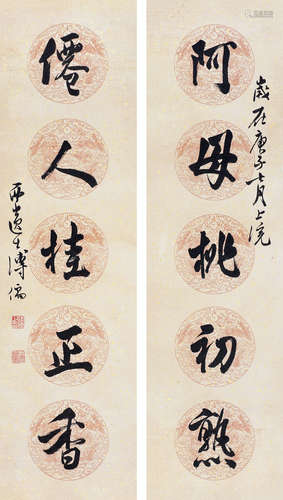 阿母桃初熟
歲在庚子七月上浣
僊人桂正香
西山逸士溥儒